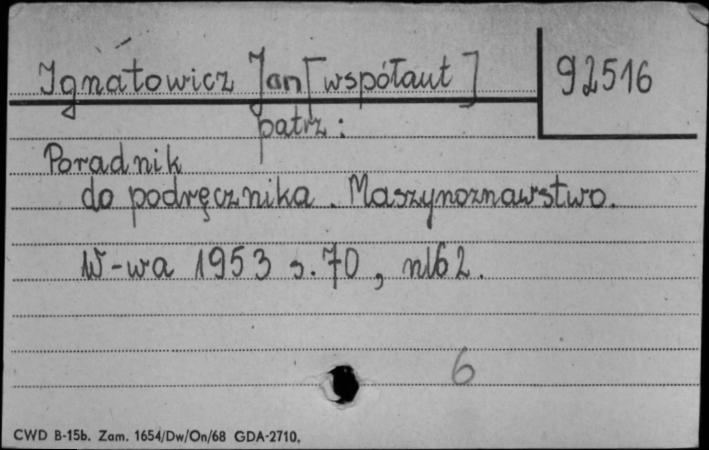 Ignatowicz Jan [współaut] 92516
patrz:
Poradnik
do podręcznika. Maszynoznawstwo.
W-wa 1953 s. 70, nlb 2.
6
CWD B-15b. Zam. 1654/Dw/On/68 GDA-2710.